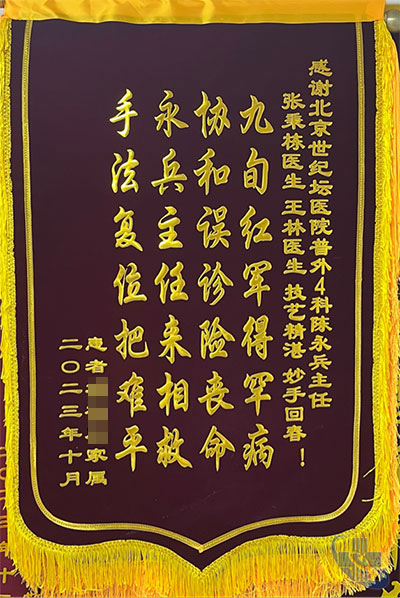 感谢北京世纪坛医院普外4科陈永兵主任
张秉栋医生 王林医生 技艺精湛 妙手回春！
九旬红军得罕病
协和误诊险丧命
永兵主任来相救
手法复位把难平
患者
家属
二〇二三年十月